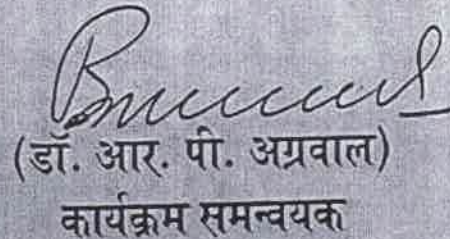 (डॉ. आर. पी. अग्रवाल)
कार्यक्रम समन्वयक